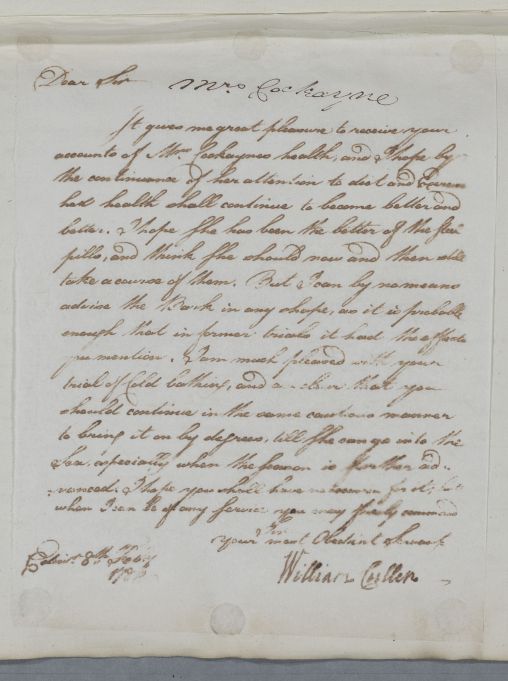 Dear Sir Mrs Cockayne
It gives me great pleasure to receive your
accounts of Mrs Cockaynes health, and I hope by
the continuance of her attention to diet and Exercise
her health shall continue to become better and
better. I hope She has been the better of the
pills, and think She should now and then still
take a course of them. But I can by no means
advise the Bark in any shape, as it is probable
enough that in former trials it had the effects
you mention. I am much pleased with your
trial of Cold bathing, and am clear that you
should continue in the same cautious manner
to bring it on by degrees, till She can go into the
Sea, especially when the season is further ad-
-vanced. I hope you shall have no for it, but
when I can be of any Service you may freely command
Sir
your most Obedient Servant
William Cullen
Edinr. 8th